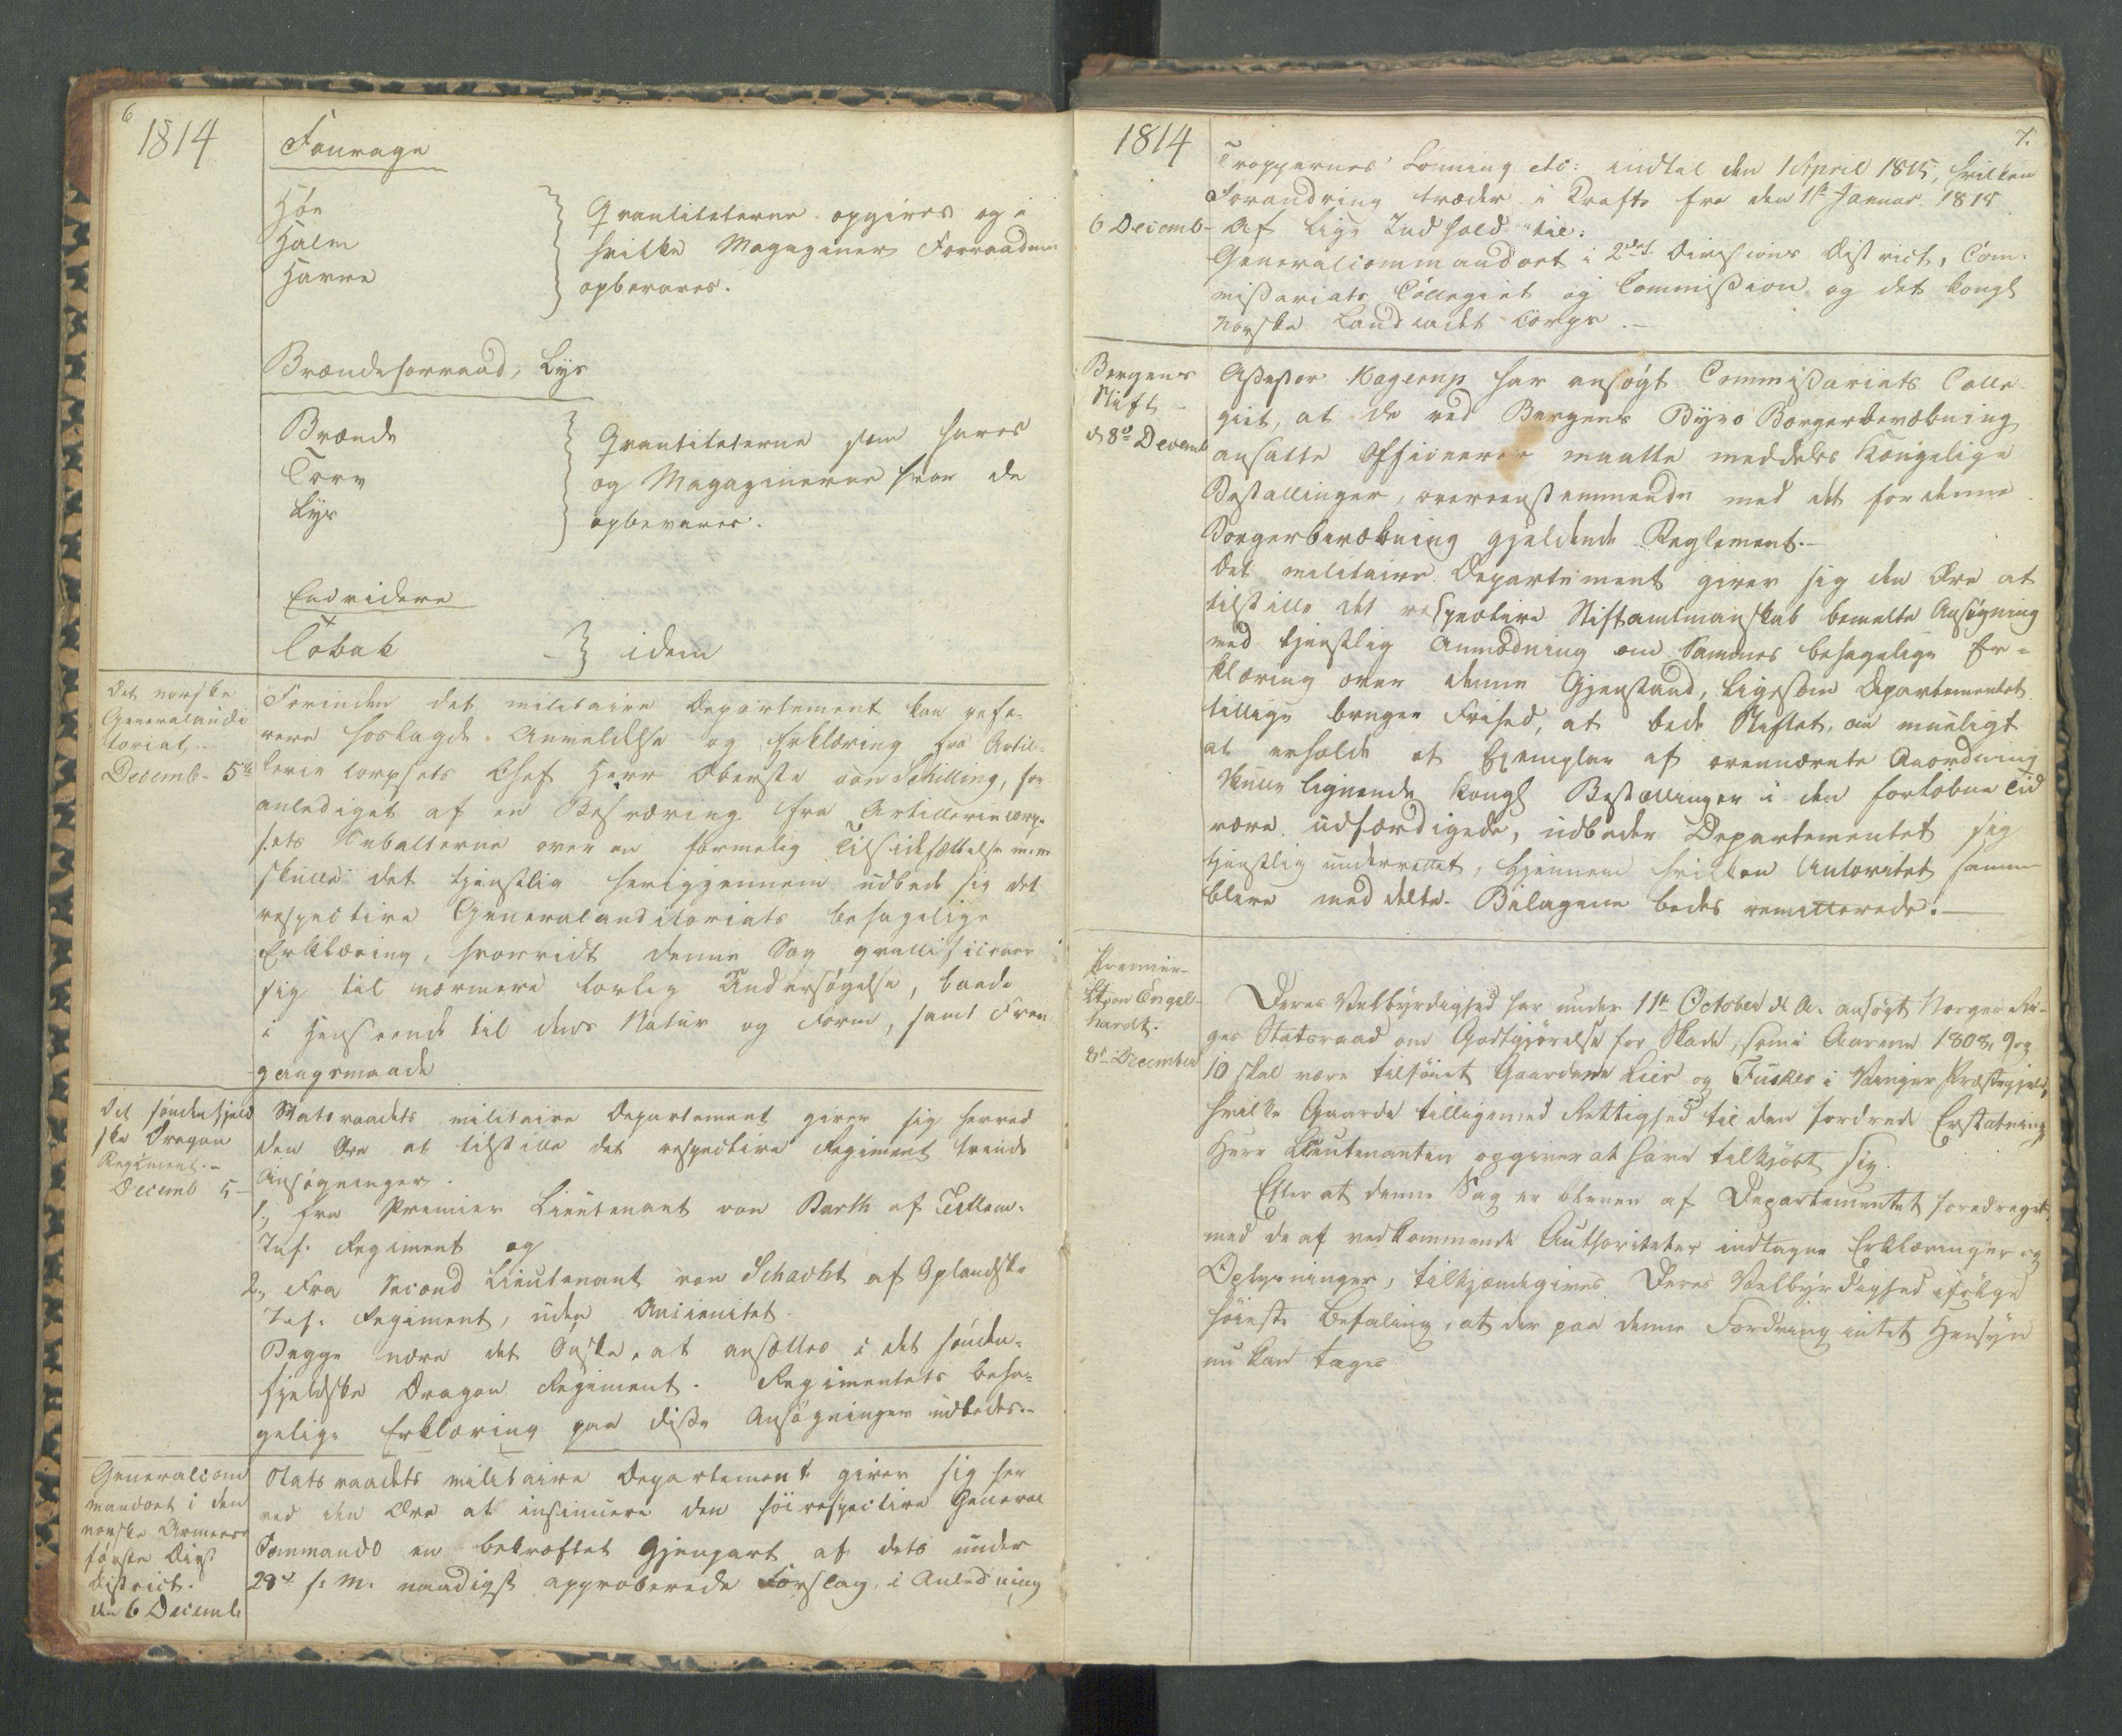 6
1814
Fourage
Høe
Halm
Havre
Qvantiteterne opgives og i
hvilke Magaziner Forraadene
opbevares.
Brændeforraad, Lys
Brænde
Torv
Lys
Qvantiteterne som haves
og Magazinerne hvor de
opbevares.
Endvidere
Tobak } idem
Det norske
Generalaudi
toriat.
Decemb. 5te
Forinden det militaire Departement kan refe-
rere hoslagde Anmeldelse og Erklæring fra Artil-
lerie Corpsets Chef Herr Oberste von Schilling, for
anlediget af en Besværing fra Artilleriecorp-
sets Subalterne over en formelig Tilsidesættelse m: m:
skulle det tjenstlig herigjennem udbede sig det
respective Generalauditoriats behagelige
Erklæring, hvorvidt denne Sag qvalificerer
sig til nærmere lovlig Undersøgelse, baade
i Henseende til dens Natur og Form, samt Frem
gangsmaade
Det søndenfjeld
ske Dragon
Regiment.-
Decemb 5
Statsraadets militaire Departement giver sig herved
den Ære at tilstille det respective Regiment tvende
Ansøgninger.
1., fra Premier Lieutenant von Barth af Tellem.
Inf. Regiment og
2., Fra Second Lieutenant von Schacht af Oplandske
Inf. Regiment, uden Ancienitet.
Begge nære det Ønske, at ansættes i det sønden-
fjeldske Dragon Regiment. Regimentets beha-
gelige Erklæring paa disse Ansøgninger udbedes.-
Generalcom
mandoet i den
norske Armees
første Divis
District.
den 6 Decemb
Statsraadets militaire Departement giver sig her
ved den Ære at insinuere den høirespective General
Commando en bekræftet Gjenpart af dets under
28de f: M: naadigst approberede Forslag, i Anledning
7.
1814
Troppernes Lønning etc: indtil den 1 April 1815, hvilken
Forandring træder i Kraft fra den 1te Januar 1815
6 Decemb-
Af lige Indhold til:
Generalcommandoet i 2det Divisions District, Com-
missariats Collegiet og Commission og det kongl
norske Landcadet Corps.-
Bergens
Stift
d 8de Decemb
Assessor Kagerup har ansøgt Commissariats Colle-
giet, at de ved Bergens Byes Borgerbevæbning
ansatte Officerer maatte meddeles Kongelige
Bestallinger, overeenstemmende med det for denne
Borgerbevæbning gjeldende Reglement.-
Det militaire Departement giver sig den Ære at
tilstille det respective Stiftamtmanskab bemelte Ansøgning
med tjenstlig Anmodning om Sammes behagelige Er-
klæring over denne Gjenstand, ligesom Departementet
tillige bruger Frihed, at bede Stiftet, om mueligt
at erholde et Exemplar af ovennævnte Anordning
Skulle lignende kongl Bestallinger i den forløbne Tid
være udfærdigede, udbeder Departementet sig
tjenstlig underrettet, gjennem hvilken Autoritet samme
bleve meddelte. Bilagene bedes remitterede.-
Premier-
Lt von Engel-
hardt.
8de December
Deres Velbyrdighed har under 11te October d. A. ansøgt Norges Ri-
ges Statsraad om Godtgjørelse for Skade, som i Aarene 1808, 9 og
10 skal være tilføiet Gaardene Lier og Fusker i Vinger Præstegjeld,
hvilke Gaarde tilligemed Rettighed til den fordrede Erstatning
Herr Lieutenanten opgiver at have tilkjøbt sig.
Efter at denne Sag er bleven af Departementet foredraget,
med de af vedkommende Authoriteter indtagne Erklæringer og
Oplysninger, tilkjendegives Deres Velbyrdighed ifølge
høieste Befaling, at der paa denne Fordring intet Hensyn
nu kan tages